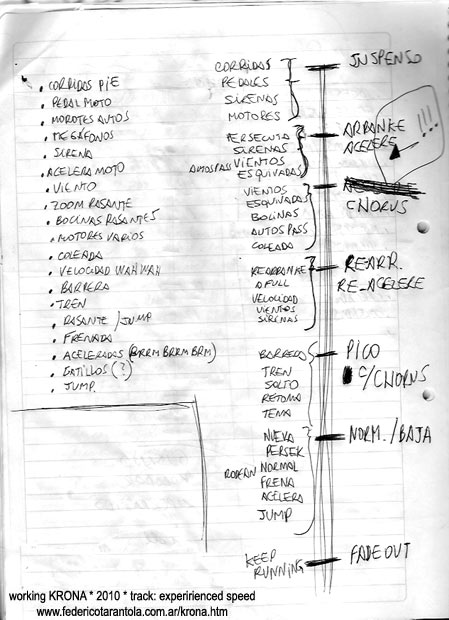 . CORRIDAS PIE
. PEDAL MOTO
. MOROTES AUTOS
. MEGAFONOS
. SIRENA
. ACELERA MOTO
. VIENTO
. ZOOM RASANTE
. BOCINAS RASANTES
. MOTORES VARIOS
. COLEADA
. VELOCIDAD WAHWAH
. BARRERA
. TREN
. RASANTE / JUMP
. FRENADA
. ACELERADAS (BRRM BRRM BRM)
. GATILLOS (?)
. JUMP.
CORRIDAS
PEDALES
SIRENAS
MOTORES
PERSECUTA
SIRENAS
AUTOS PASS VIENTOS
ESQUIVADAS
VIENTOS
ESQUIVADAS
BOCINAS
AUTOS PASS
COLEADA
REARRANKE
A FULL
VELOCIDAD
VIENTOS
SIRENAS
BARRERA
TREN
SALTO
RETOMA
TEMA
NUEVA
PERSEK
NORMAL
FRENA
ACELERA
JUMP
KEEP
RUNNING
INSPENSO
ARRANKE
ACELERE
!!!
CHORUS
REARR.
RE-ACELERE
PICO
C/CHORUS
NORM./BAJA
FADE OUT
working KRONA * 2010 * track: experirienced speed
www.federicotarantola.com.ar/krona.htm